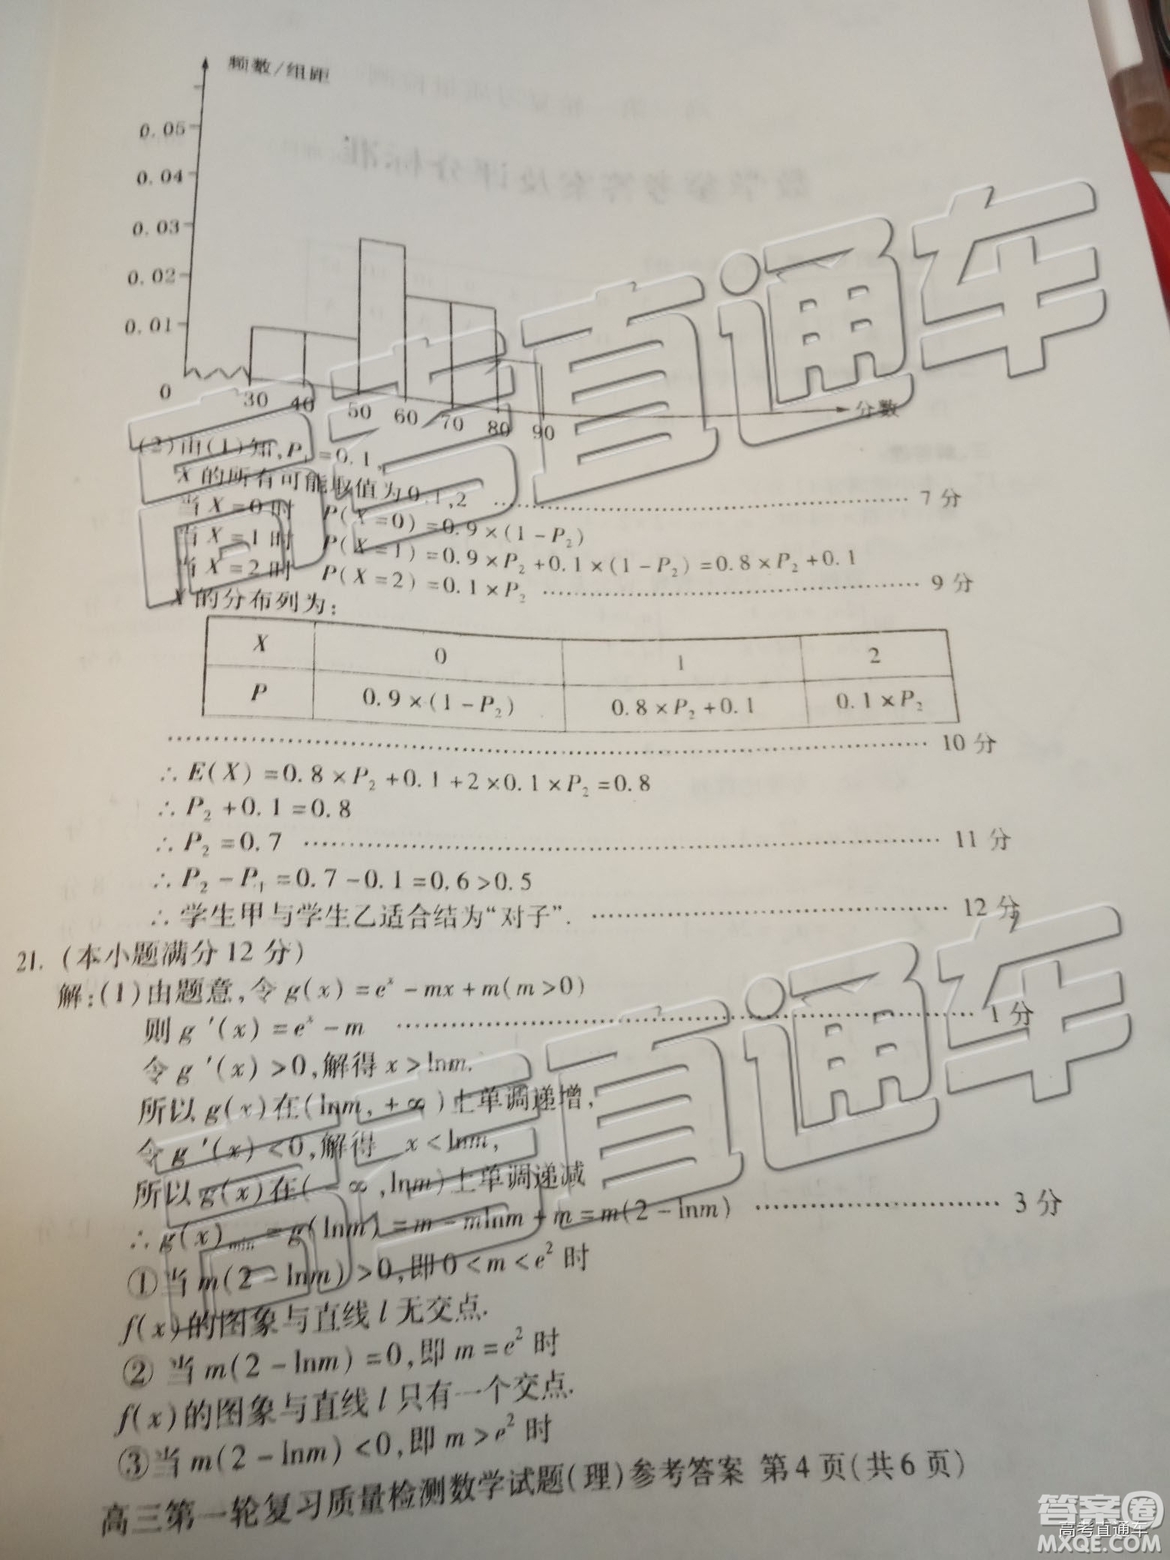 频数/组距
0.05
0.04
0.03
0.02
0.01
0
30 40 50 60 70 80 90
分数
(2)由(1)知,P₁=0.1,
X的所有可能取值为0,1,2 ………… 7分
当X=0时 P(X=0)=0.9×(1-P₂)
当X=1时 P(X=1)=0.9×P₂+0.1×(1-P₂)=0.8×P₂+0.1
当X=2时 P(X=2)=0.1×P₂ ………… 9分
X的分布列为:
X 0 1 2
P 0.9×(1-P₂) 0.8×P₂+0.1 0.1×P₂
………… 10分
∴E(X)=0.8×P₂+0.1+2×0.1×P₂=0.8
∴P₂+0.1=0.8
∴P₂=0.7 ………… 11分
∴P₂-P₁=0.7-0.1=0.6>0.5
∴学生甲与学生乙适合结为“对子”. ………… 12分
21.(本小题满分12分)
解:(1)由题意,令g(x)=eˣ-mx+m(m>0)
则g′(x)=eˣ-m ………… 1分
令g′(x)>0,解得x>lnm.
所以g(x)在(lnm,+∞)上单调递增,
令g′(x)<0,解得 x<lnm,
所以g(x)在(-∞,lnm)上单调递减
∴g(x)min=g(lnm)=m-mlnm+m=m(2-lnm) ………… 3分
①当m(2-lnm)>0,即0<m<e²时
f(x)的图象与直线l无交点.
②当m(2-lnm)=0,即m=e²时
f(x)的图象与直线l只有一个交点.
③当m(2-lnm)<0,即m>e²时
高三第一轮复习质量检测数学试题(理)参考答案 第4页(共6页)
高考直通车
高考直通车
答案圈
高考直通车
MXQE.COM